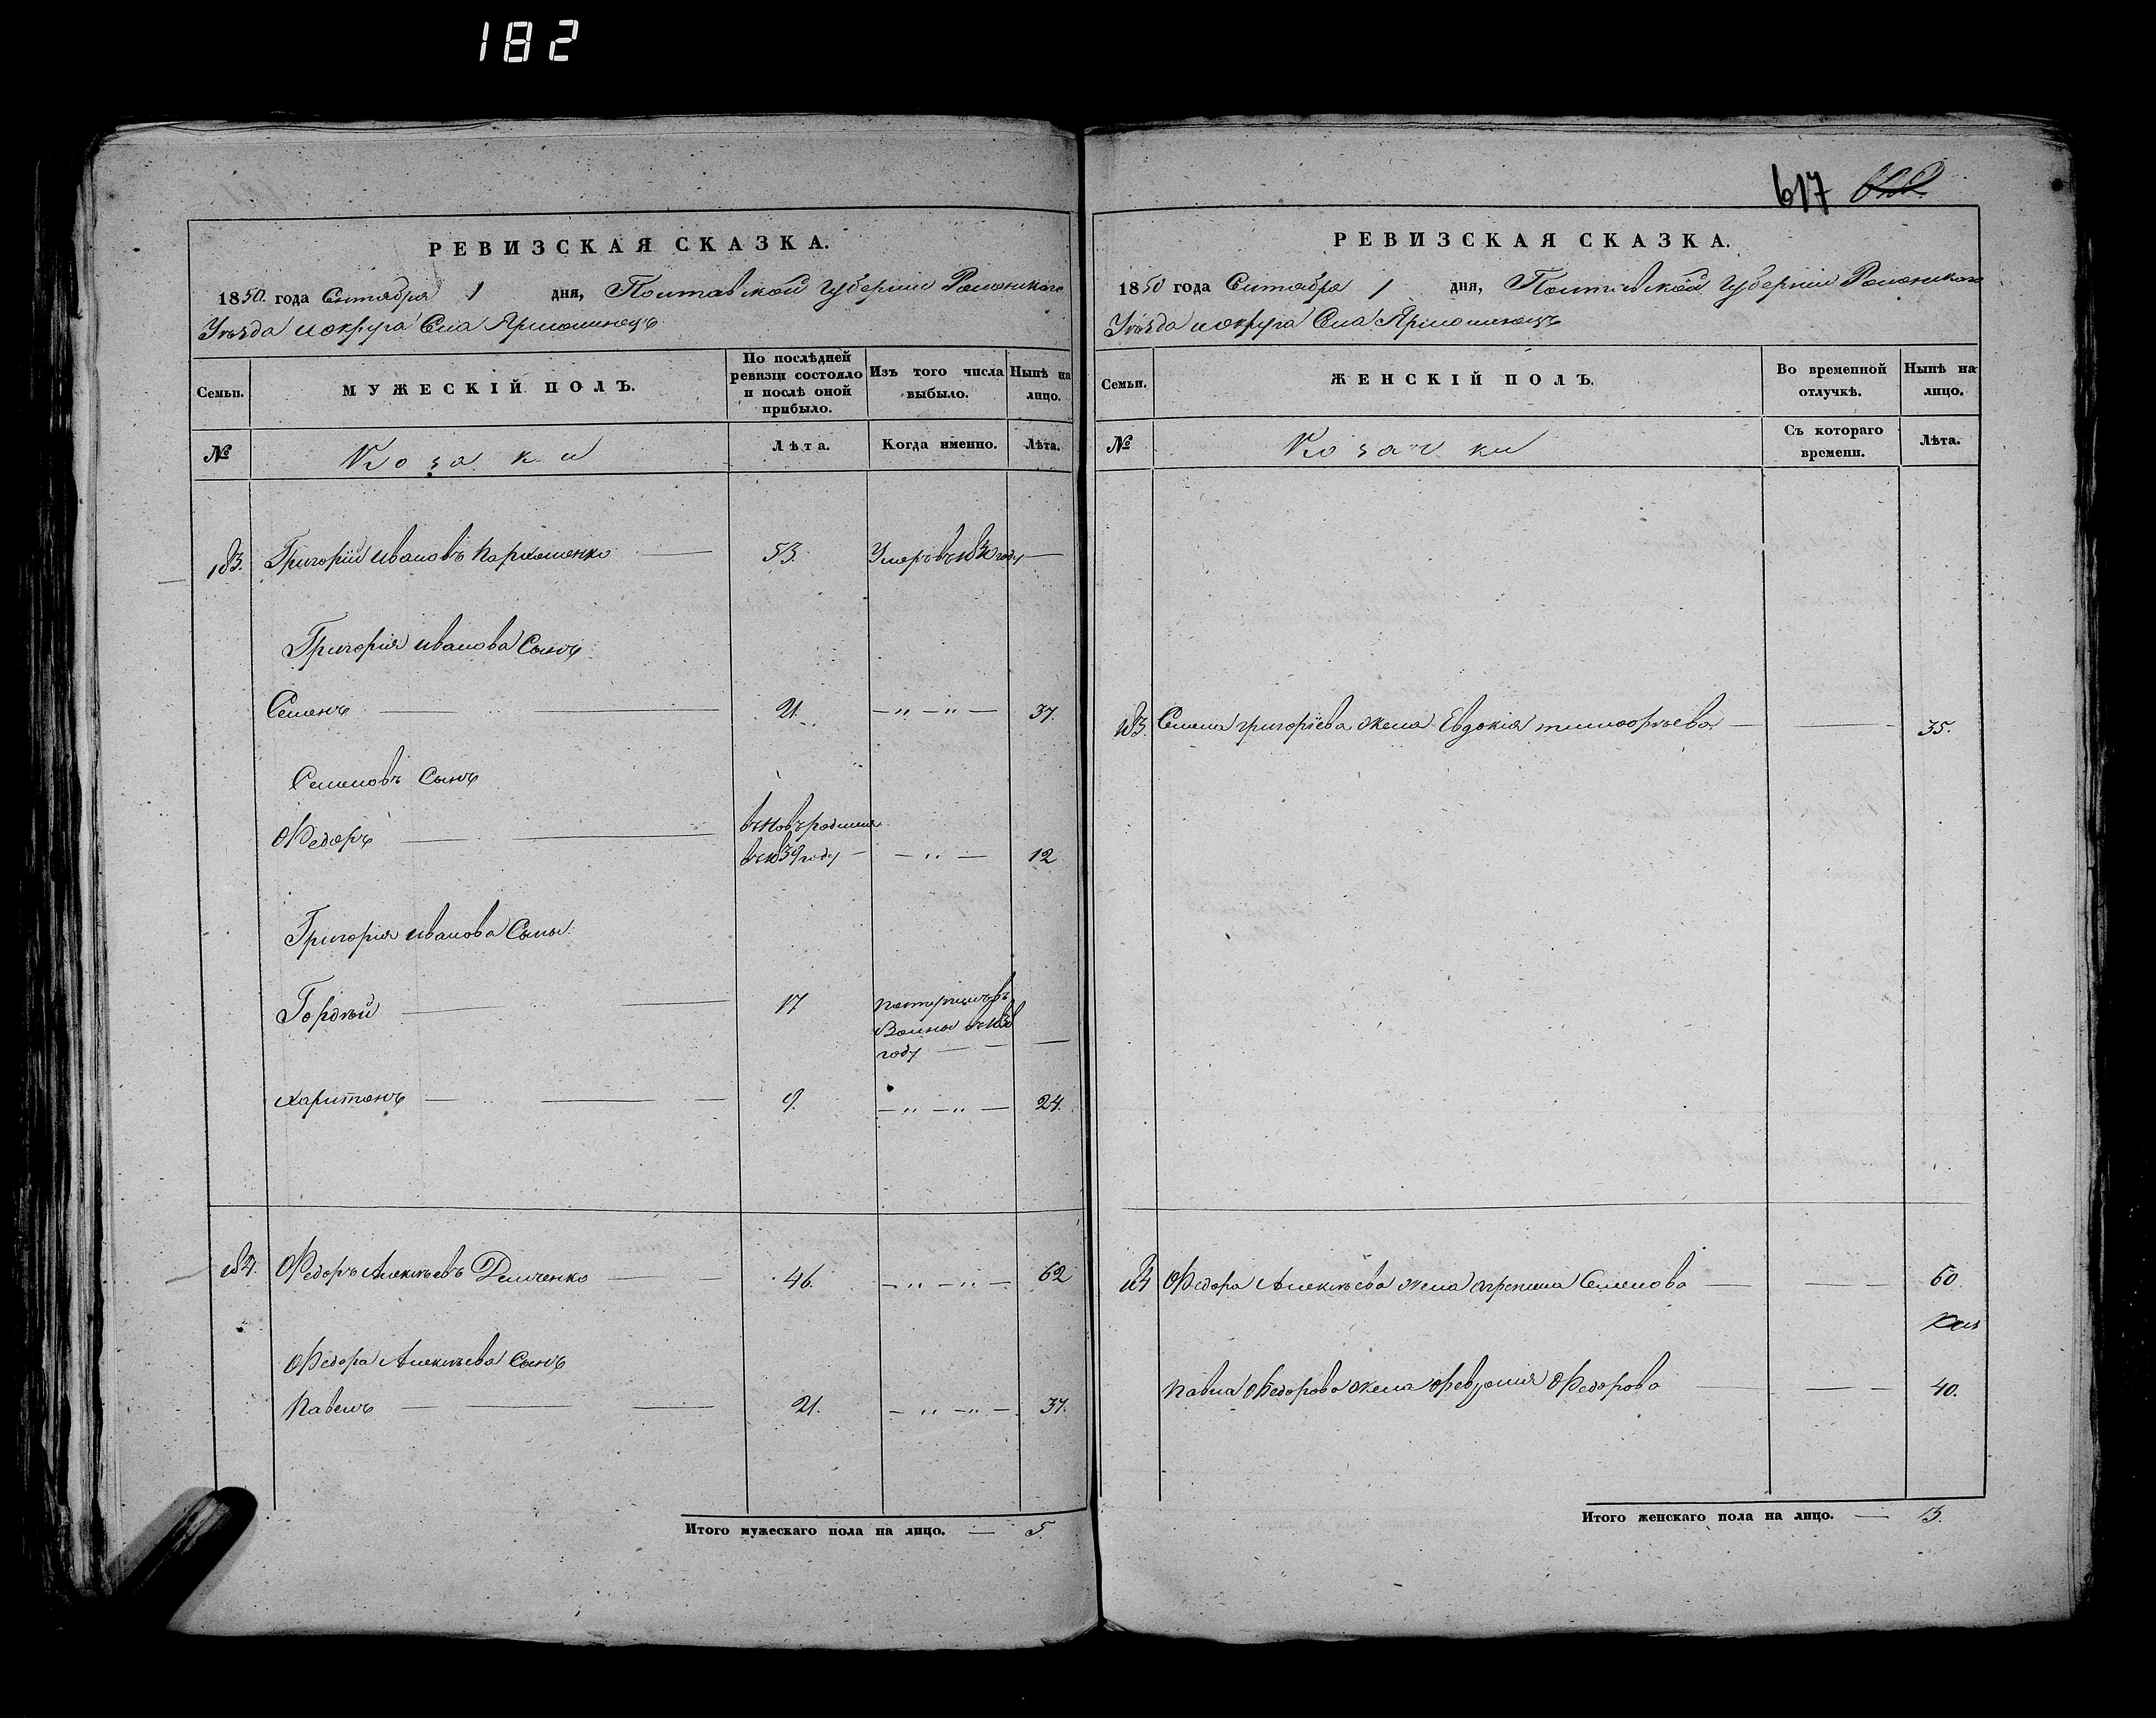 182
617
РЕВИЗСКАЯ СКАЗКА.
1850. года Сентября 1 дня, Полтавской Губернiи Роменскаго
Уѣзда и округа Села Ярмолинецъ
Семьи.
МУЖЕСКІЙ ПОЛЪ.
По послѣдней ревизіи состояло и послѣ оной прибыло.
Изъ того числа выбыло.
Нынѣ на лицо.
№
Козаки
Лѣта.
Когда именно.
Лѣта.
183. Григорій Ивановъ Пархоменко 53. Умеръ въ 1840 году
Григорія Иванова Сынъ
Семенъ 21. 37.
Семеновъ Сынъ
Федоръ
въ 1839 году 12
Григорія Иванова Сыны
Гордѣй 17
году
Харитонъ 9. 24.
184. Федоръ Алексѣевъ Демченко 46. 62
Федора Алексѣева Сынъ
Павелъ 21. 37.
Итого мужескаго пола на лицо. 5.
РЕВИЗСКАЯ СКАЗКА.
1850 года Сентября 1 дня, Полтавской Губерніи Роменскаго
Уѣзда и округа Села Ярмолинецъ
Семьи.
ЖЕНСКІЙ ПОЛЪ.
Во временной отлучкѣ.
Нынѣ на лицо.
№
Козачки
Съ котораго времени.
Лѣта.
183. Семена Григоріева жена Евдокія Тимофѣева 35.
184 Федора Алексѣева жена Агрепина Семенова 60.
Павла Федорова жена Февронія Федорова 40.
Итого женскаго пола на лицо. 3.